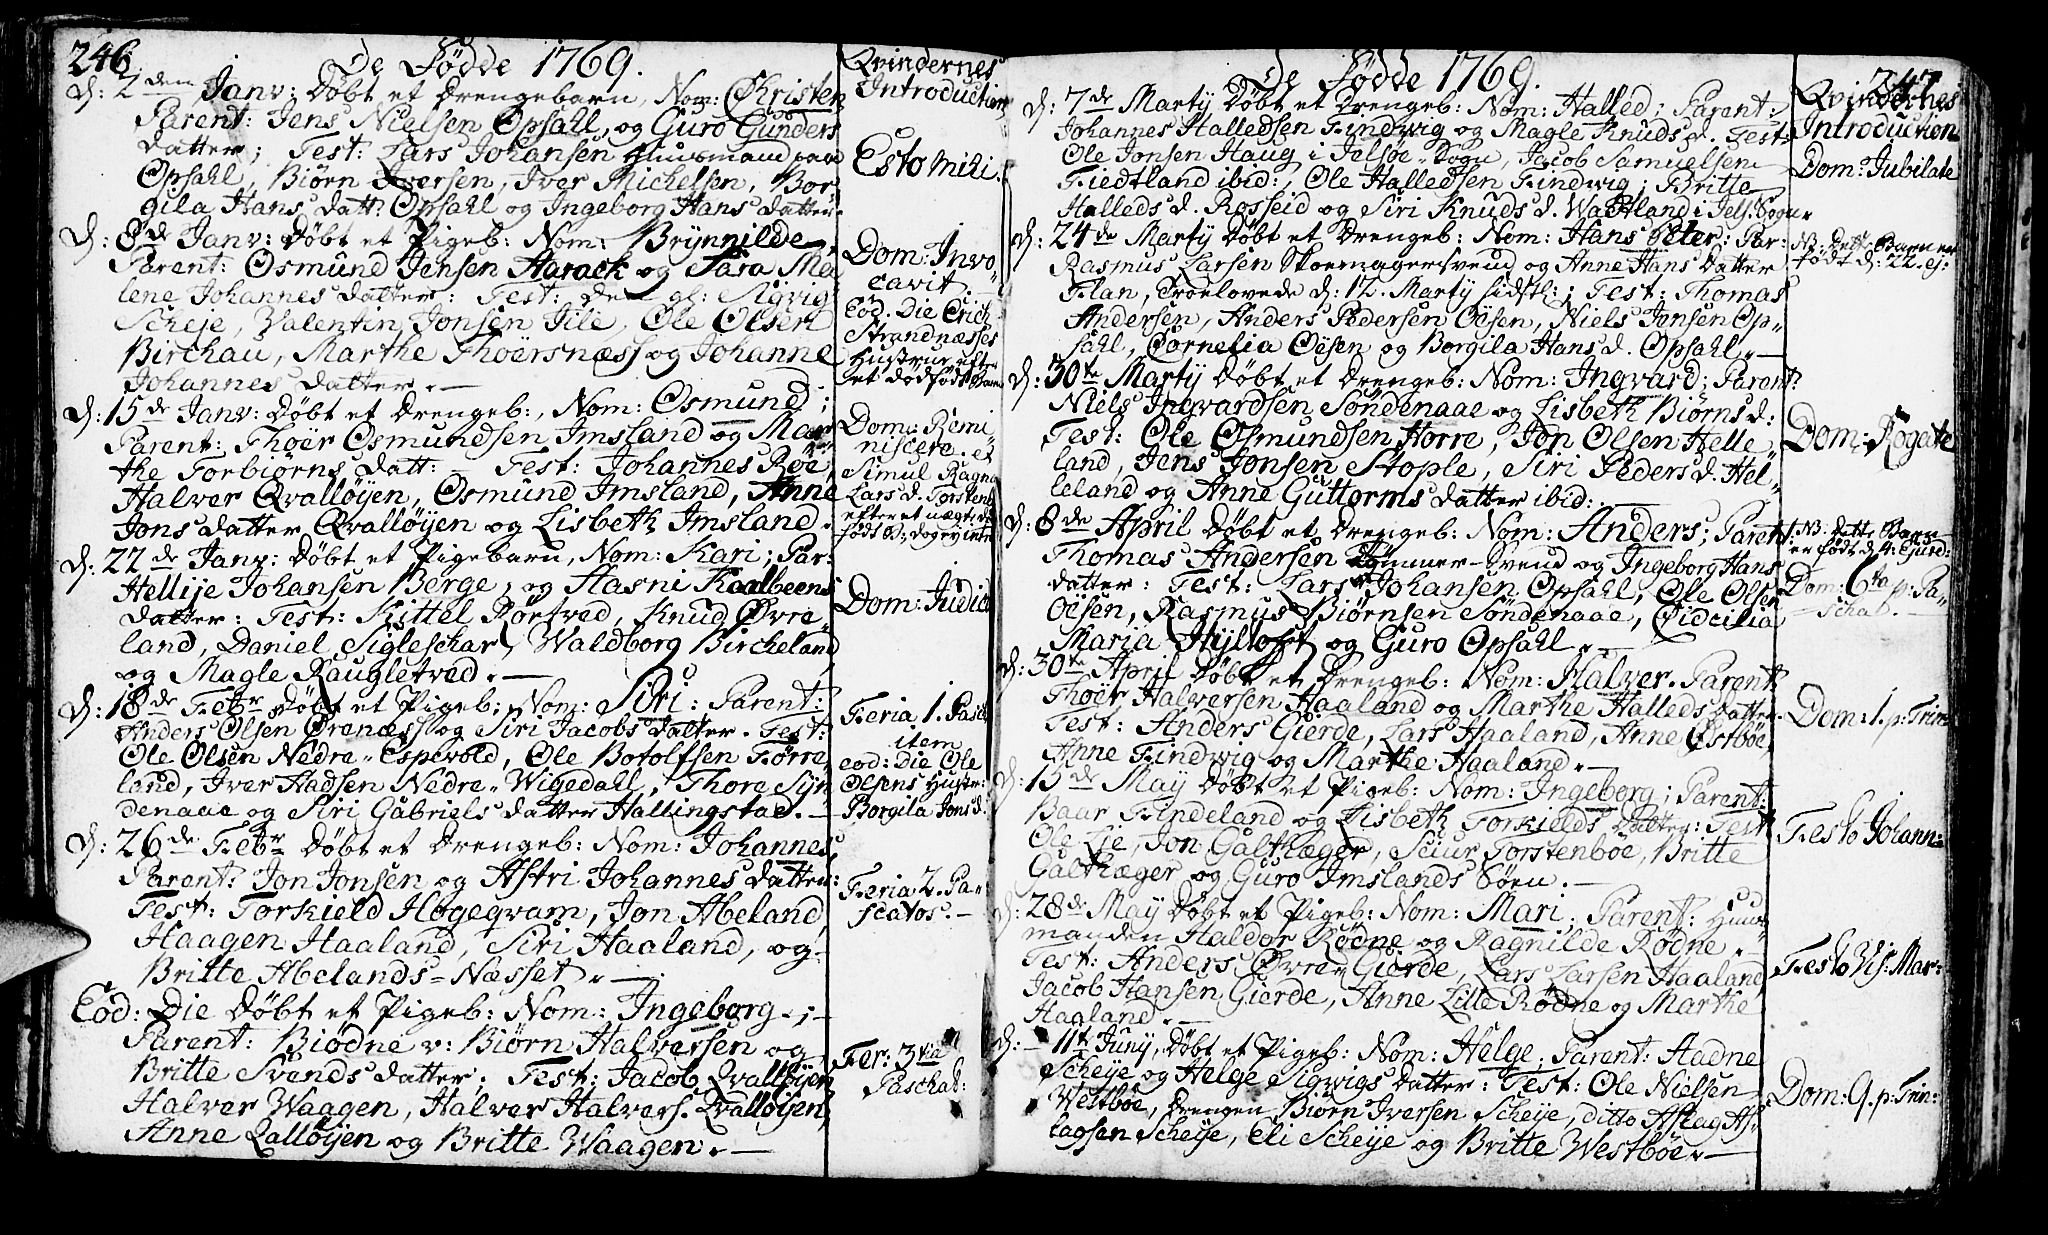 246.
De Fødde 1769.
d: 2den Janv: Døbt et Drengebarn, Nom: Christen
Parent: Jens Nielsen Opsahl, og Guro Gunders
datter; Test: Lars Johansen Huusmand paa
Opsahl, Biørn Iversen, Iver Michelsen, Bor-
gila Hans datt: Opsahl og Ingeborg Hans datter.
d: 8de Janv: Døbt et Pigeb: Nom: Brynnilde,
Parent: Osmund Jensen Aarack og Sara Ma
lene Johannes datter: Test: de gl: Sigvig
Scheje, Valentin Jonsen Tile, Ole Olsen
Birchau, Marthe Thoersnæss og Johanne
Johannes datter. —
d: 15de Janv: Døbt et Drengeb:, Nom: Osmund;
Parent: Thoer Osmundsen Imsland og Mar
the Torbiørns datt: — Test: Johannes Røe,
Halver Qvalløyen, Osmund Imsland, Anne
Jons datter Qvalløyen og Lisbeth Imsland.
d: 22de Janv: Døbt et Pigebarn, Nom: Kari; Par:
Hellije Johansen Berge, og Hasni Kaalbeens
datter: Test: Kittel Rørtved, Knud Øvre
land, Daniel Sigleschar, Waldborg Bircheland
og Magle Raugletved. —
d: 18de Febr Døbt et Pigeb; Nom: Siri: Parent:
Anders Olsen Ørenæss og Siri Jacobs datter. Test:
Ole Olsen Nedre-Espevold, Ole Botolfsen Førre
land, Iver Aadsen Nedre-Wigedahl, Thore Syn
denaae og Siri Gabriels datter Hallingstad. —
d: 26de Febr Døbt et Drengeb: Nom: Johannes
Parent: Jon Jonsen og Astri Johannes datter:
Test: Torkield Høgeqvam, Jon Abeland,
Haagen Haaland, Siri Haaland, og
Britte Abelands-Næsset. —
Eod: Die Døbt et Pigeb: Nom: Ingeborg —
Parent: Biødne v: Biørn Halversen og
Britte Svends datter. Test: Jacob Qvalløyen
Halver Waagen, Halver Halvers. Qvalløyen,
Anne Qalløyen og Britte Waagen. —
Qvindernes
Introduction
Esto Mihi.
Dom: Invo
cavit.
Eod. Die Erich
Strandnæsses
Hustrue efter
et dødfødt Barn
Dom: Remi
niscere. et
Simul Ragna
Lars d. Torstenb
Dom: Judica
Feria 1. Pasch
item
eod: Die Ole
Olsens Hustr:
Borgila Jons d.
Feria 2. Pa-
scatos. —
Fer: 3tia
Paschal:
247.
De Fødde 1769.
d: 7de Marty Døbt et Drengeb: Nom: Halled; Parent:
Johannes Halledsen Findwig og Magle Knuds d. Test:
Ole Jonsen Haug i Jelsøe-Sogn, Jacob Samuelsen
Fiedtland ibid:, Ole Halledsen Findwig; Britte
Halleds d. Rosseid og Siri Knuds d. Wadland i Jels. Sogn.
d: 24de Marty Døbt et Drengeb: Nom: Hans Peter: Par:
Rasmus Larsen Skoemagersvend og Anne Hans datter
Flan, Troelovede d: 12. Marty sidstl:; Test: Thomas
Andersen, Anders Pedersen Oësen, Niels Jonsen Op-
sahl, Cornelia Oësen og Borgila Hans d. Opsahl. —
d: 30te Marty Døbt et Drengeb: Nom: Ingvard; Parent:
Niels Ingvardsen Søndenaae og Lisbeth Biørns d:
Test: Ole Osmundsen Horre, Jon Olsen Helle
land, Jens Jonsen Stople, Siri Peders d. Hel-
leland og Anne Guttorms datter ibid: —
d: 8de April Døbt et Drengeb: Nom: Anders; Parent:
Thomas Andersen Tømmer-Svend og Ingeborg Hans
datter: Test: Lars Johansen Opsahl, Ole Olsen
Oësen, Rasmus Biørnsen Søndenaae, Cidcilia
Maria Hyltoft og Guro Opsahl. —
d: 30te April Døbt et Drengeb: Nom: Halver. Parent:
Thoer Halversen Haaland og Marthe Halleds datter.
Test: Anders Gierde, Lars Haaland, Anne Østbøe,
Anne Findwig og Marthe Haaland. —
d: 15de May Døbt et Pigeb: Nom: Ingeborg; Parent:
Baar Findeland og Lisbeth Torkields datter: Test:
Ole Lie, Jon Galthæger, Seiur Torstenbøe, Britte
Galthæger og Guro Imslands Søen. —
d: 28de May Døbt et Pigeb: Nom: Mari. Parent: Huus
manden Haldor Rødne og Ragnilde Rødne.
Test: Anders Øvre-Gierde, Lars Larsen Haaland,
Jacob Hansen Gierde, Anne Lille Rødne og Marthe
Haaland. —
d: 11t Juny, Døbt et Pigeb: Nom: Helge. Parent: Aadne
Scheye og Helge Sigwigs datter: Test: Ole Nielsen
Westbøe, Drengen Biørn Iversen Scheye, ditto Aslag As-
lagsen Scheye, Eli Scheye og Britte Westbøe. —
Qvindernes
Introduction
Dom: Jubilate
NB. dette Barn er
født d: 22. ej:
Dom: Rogate
NB. dette Barn
er født d. 4. Ejusd:
Dom: 6ta p: Pa-
schal. —
Dom: 1. p: Trin:
Festo Johann:
Festo Vis: Mar:
Dom: 9. p: Trin: